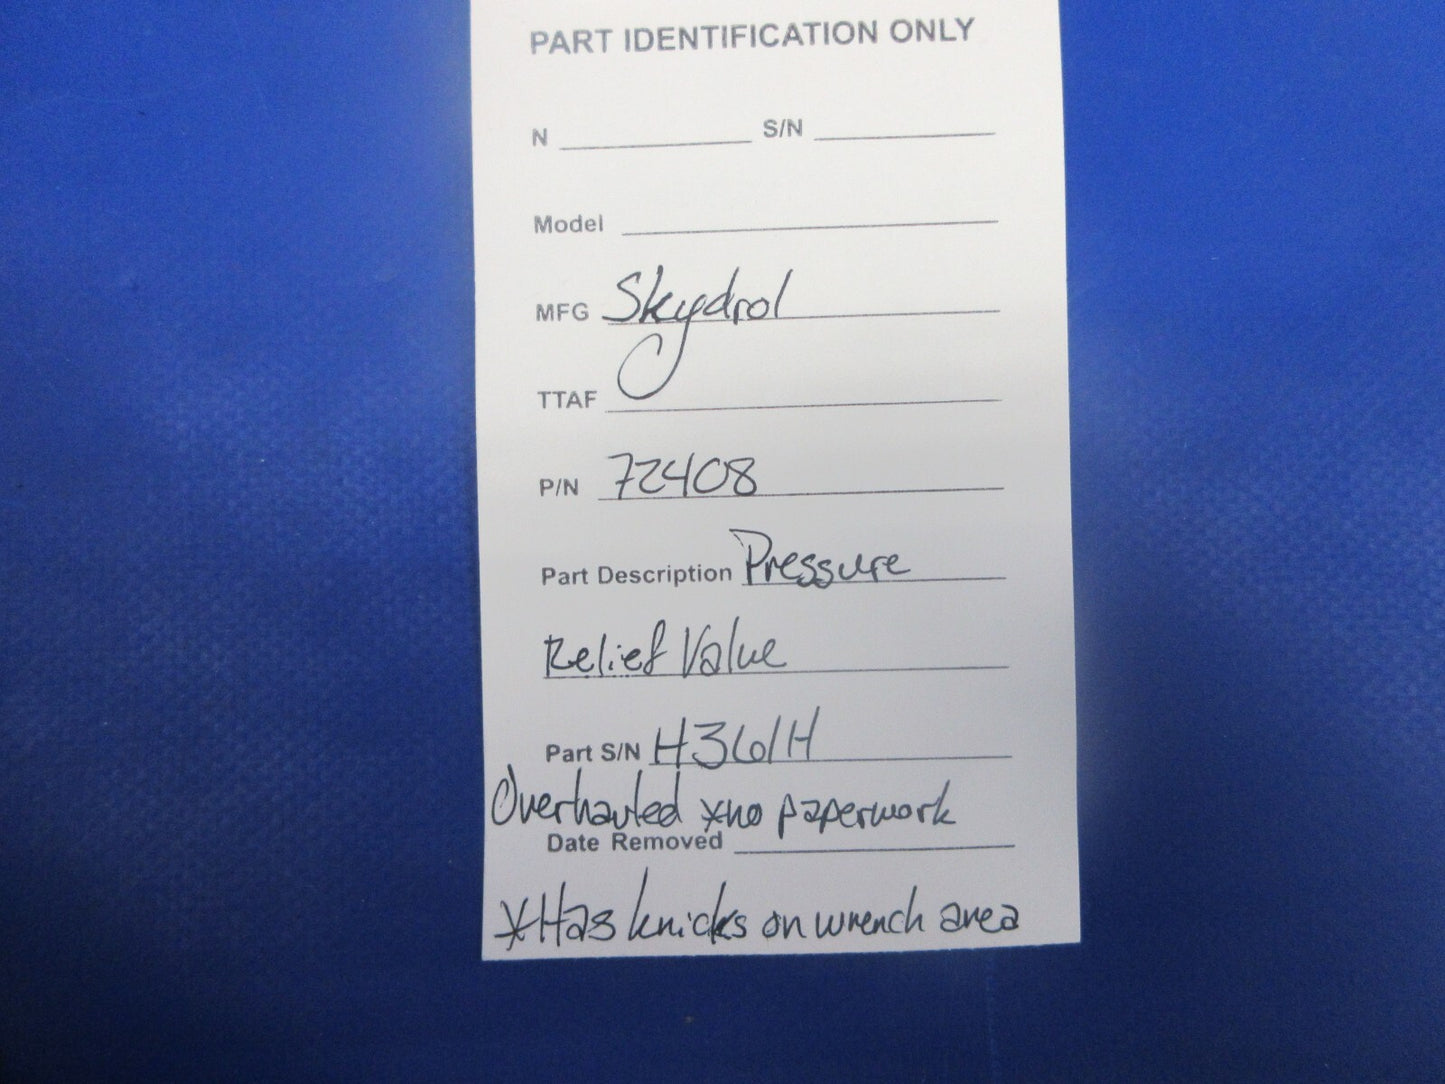 PART IDENTIFICATION ONLY
N S/N
Model
MFG Skydrol
TTAF
P/N 72408
Part Description Pressure
Relief Valve
Part S/N H361H
Overhauled *no paperwork
Date Removed
*Has knicks on wrench area